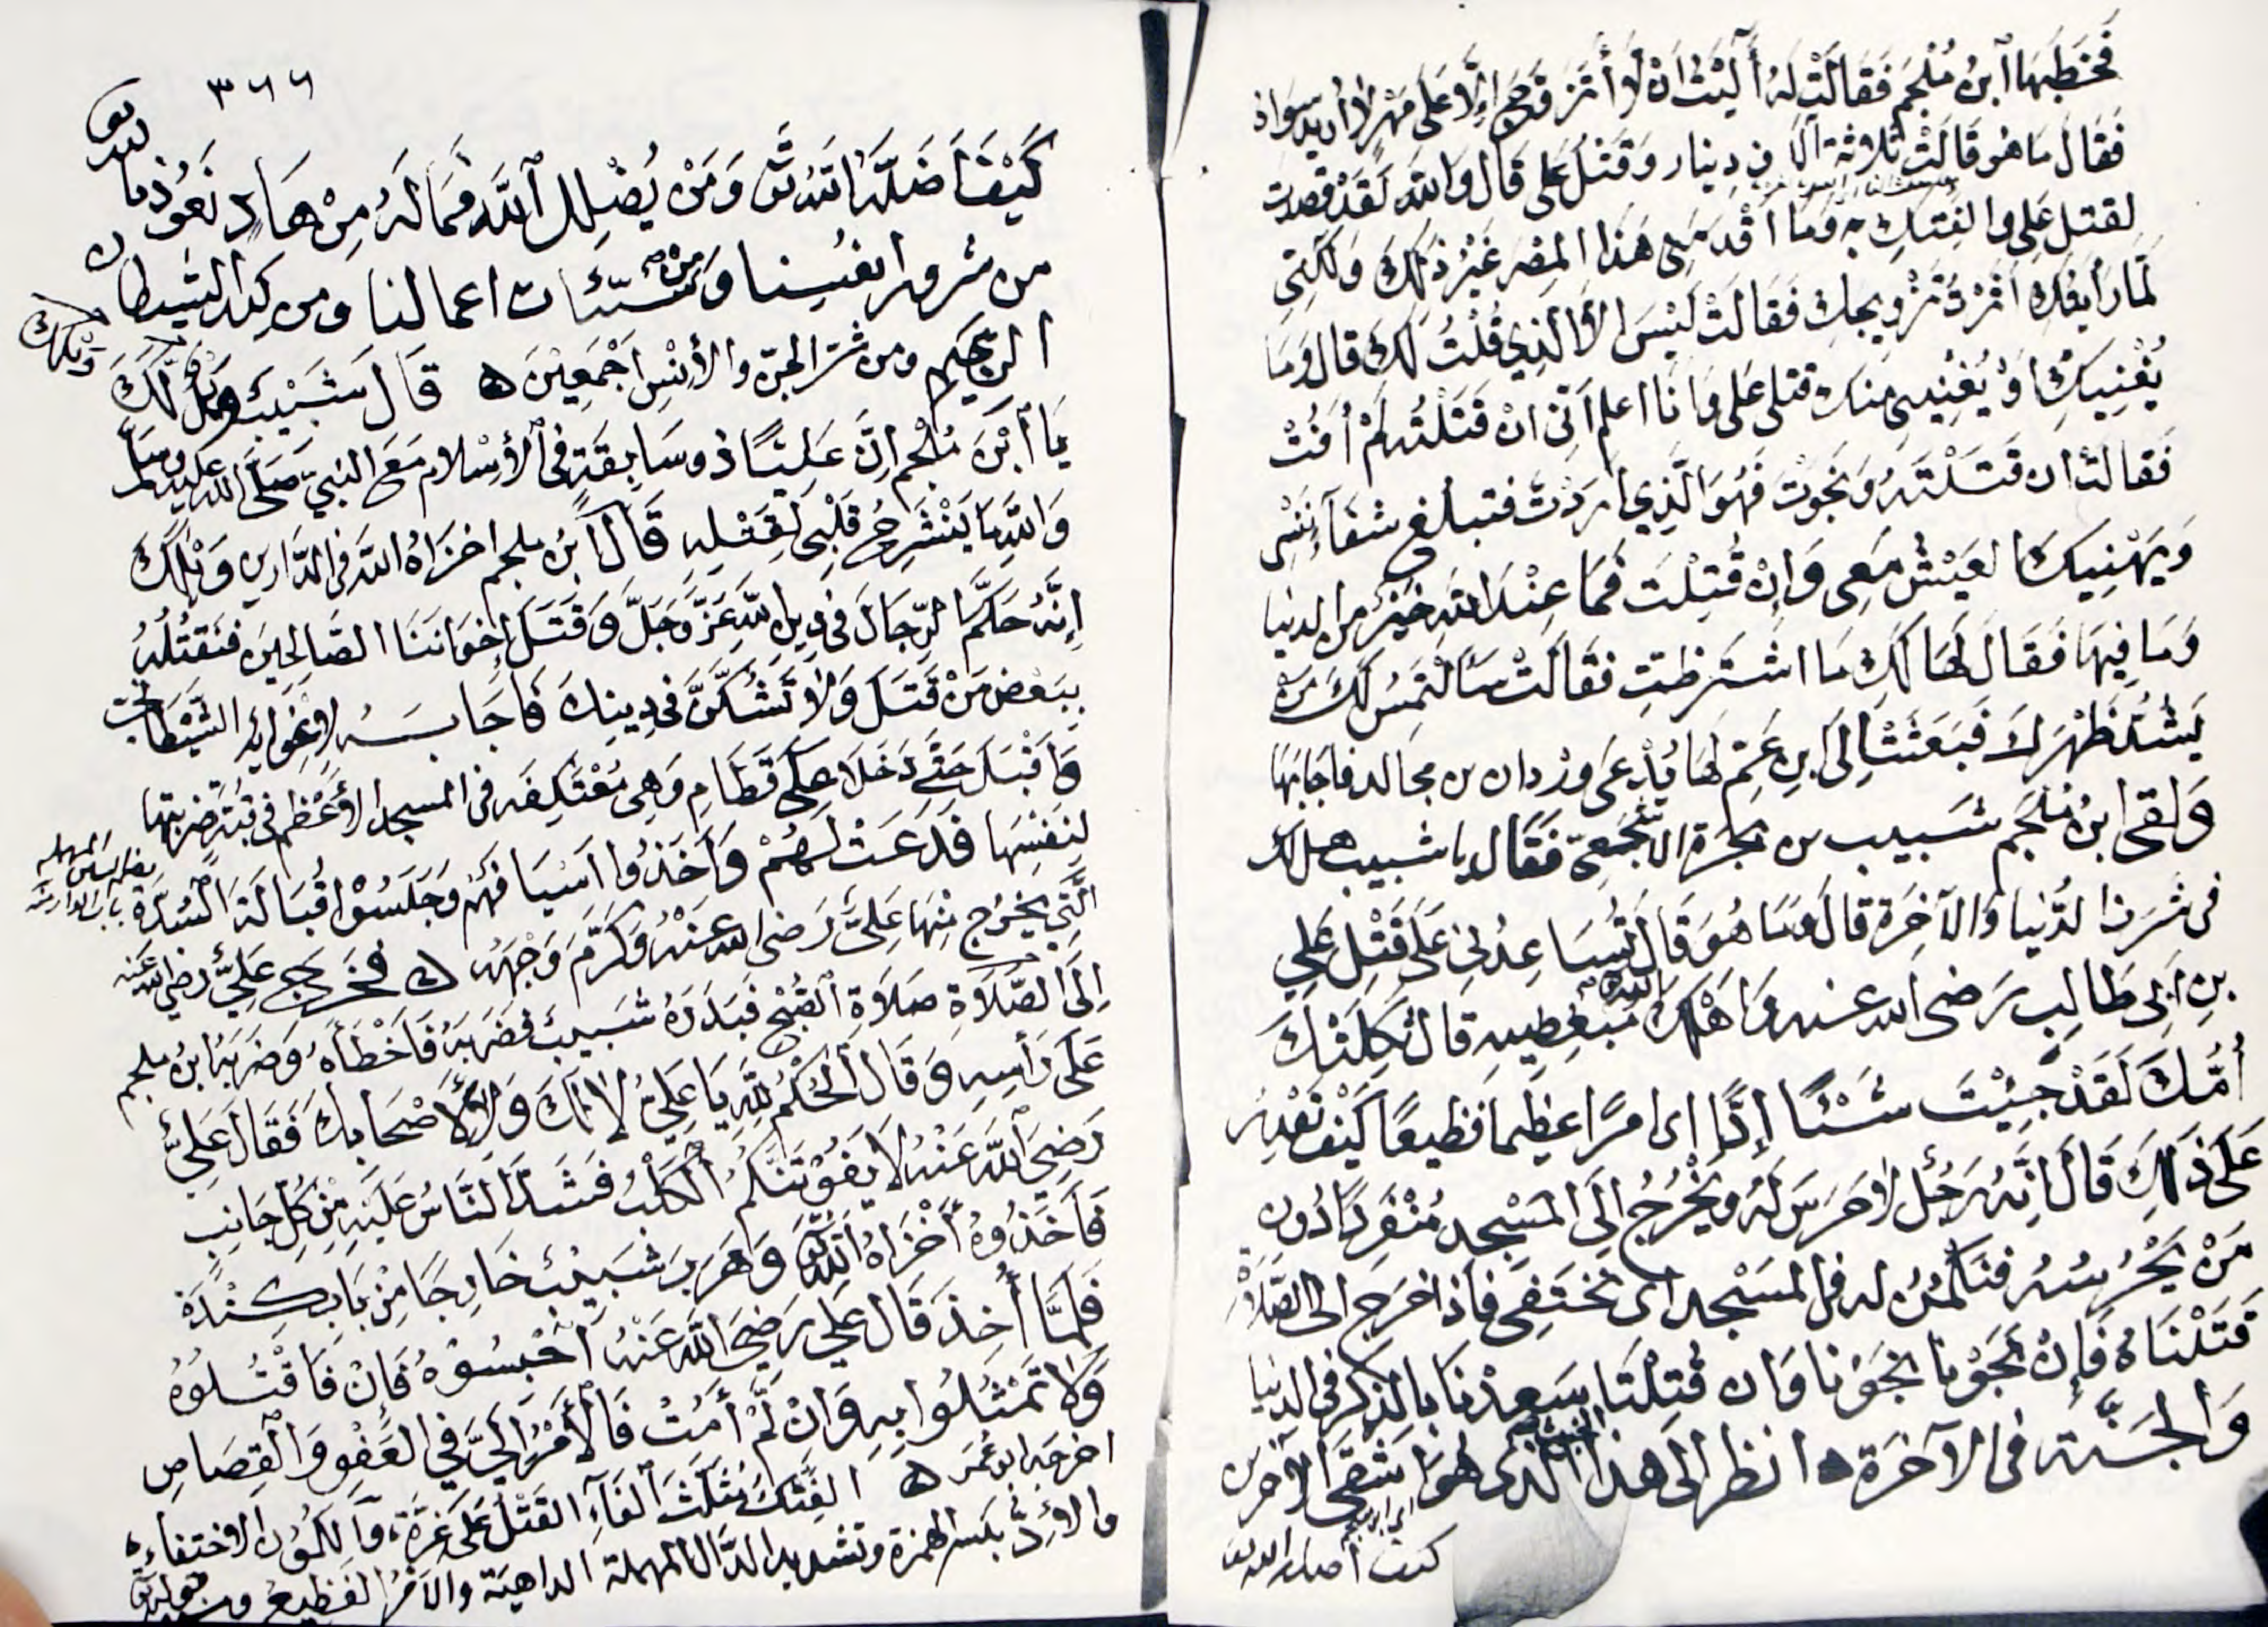 فَخَطَبَهَا ابْنُ مُلْجَم فَقَالَتْ لَهُ آلَيْتُ انْ لَا أَتَزَوَّجَ إِلَّا عَلَى مَهْرٍ لَا أُرِيدُ سِوَاهُ
فَقَالَ مَا هُوَ قَالَتْ ثَلَاثَةُ آلَافِ دِينَار وَقَتْلُ عَلِي قَالَ وَاللَّهِ لَقَدْ قَصَدْتُ
لقتل عَلِي والفتك بِهِ وَمَا اقْدَمَنِي هَذَا الْمِصْرَ غَيْرُ ذَلِكَ وَلَكِنِّي
لَمَّا رَأَيْتُكِ آثَرْتُ تَزْوِيجَكِ فَقَالَتْ لَيْسَ الَّا الَّذِي قُلْتُ لَكَ قَالَ وَمَا
يُغْنِيكِ أَوْ يُغْنِينِي مِنْكِ قتلى عَلِي وَانَا اعلم اَنِّي انْ قَتَلْتُه لَمْ أَفُتْ
فَقَالَتْ ان قَتَلْتَهُ وَنَجَوْتَ فَهُوَ الَّذِي أَرَدْتُ فتبلغ شفآءَ نَفْسِي
وَيَهْنِيكَ الْعَيْشُ مَعِي وَإِنْ قُتِلْتَ فَمَا عِنْدَ اللَّهِ خَيْرٌ من الدنيا
وَمَا فِيهَا فَقَالَ لَهَا لَكِ مَا اشْتَرَطْتِ فَقَالَتْ سَأَلْتَمِسُ لَكَ مَنْ
يَشُدُّ ظَهْرَكَ فَبَعَثَتْ إِلَى ابن عَمٍّ لَهَا يُدْعَى وَرْدَان بن مجالد فَاجَابَهَا
وَلَقِيَ ابنُ مُلْجَم شَبِيب بن بَجَرَة الاشْجَعِيّ فَقَال يا شبيب هل لك
فى شَرَفِ الدُّنْيَا وَالآخِرَةِ قَالَ وَمَا هُوَ قَالَ تُسَاعِدُنِي عَلَى قَتْلِ عَلِي
بن أَبِي طَالِب رَضى الله عنه قَالَ ثَكِلَتْكَ
أُمُّكَ لَقَدْ جِئْتَ شَيْئًا إِدًّا اى امرًا عَظِيمًا فَظِيعًا كَيْفَ تَقْدِرُ
عَلَى ذَلِكَ قَالَ إِنَّهُ رَجُلٌ لَا حَرَسَ لَهُ وَيَخْرُجُ إِلَى الْمَسْجِدِ مُنْفَرِدًا دُون
مَنْ يَحْرُسُهُ فَنَكْمُنُ له فى الْمَسْجِد اى نَخْتَفِى فَاذَا خَرَج الى الصَّلَاةِ
قَتَلْنَاهُ فَإِنْ نَجَوْنَا نَجَوْنَا وَان قُتِلْنَا سَعِدْنَا بِالذِّكْرِ فى الدنيا
وَالْجَنَّةِ فى الآخِرَةِ انظر الى هذا الَّذى هُوَ اشْقَى الآخرين
كيف أضله الله
٣٦٦
كَيْفَ أَضَلَّهُ اللَّهُ وَمَنْ يُضْلِلِ اللَّهُ فَمَا لَهُ مِنْ هَادٍ نَعُوذُ بالله
من شرور انفُسِنا وَمِنْ سَيِّئَات اعمالنا ومن كيد الشيطان
الرجيم ومن شَرِّ الجِنِّ والأِنْسِ اَجْمَعِيْنَ قَالَ شَبِيْبٌ وَيْلَكَ
يَا ابْنَ مُلْجَم إِنَّ عَلِيًّا ذُو سَابِقَةٍ فى الأِسْلَام مَعَ النبىّ صَلَّى الله عليه وسلم
وَاللَّهِ مَا يَنْشَرِحُ قَلْبِي لِقَتْلِهِ قَالَ ابن ملجم اخزَاهُ اللَّهُ فى الدَّارين وَيْلَكَ
إِنَّهُ حَكَّمَ الرِّجَالَ فى دين اللهِ عَزَّ وَجَلَّ وَقَتَلَ إِخْوَانَنَا الصَّالِحِينَ فَنَقْتُلُهُ
بِبَعْضِ مَنْ قَتَلَ وَلَا تَشُكَّنَّ فى دِينِكَ فَاجَابَهُ لِاِغْوَائِهِ الشَّيْطَان
وَاقْبَلَ حَتَّى دَخَلَا عَلَى قَطَامِ وَهِىَ مُعْتَكِفَه فى المسجد الأَعْظَم فى قبّة ضربتها
لنَفْسِهَا فَدَعَتْ لَهُمْ وَاَخَذُوا اَسْيَافَهُمْ وَجَلَسُوْا قُبَالَةَ السُّدَّةِ
الَّتِي يَخْرُج مِنْهَا عَلِيّ رَضى الله عَنْهُ وَكَرَّمَ وَجْهَهُ فَخَرَجَ عَلِيٌّ رضى الله عنه
إِلَى الصَّلَاةِ صَلَاةِ الصُّبْحِ فَبَدَرَهُ شَبِيب فضَرَبَهُ فَاَخْطَأَهُ وَضَرَبَهُ ابن ملجم
عَلَى رَأسِهِ وَقَالَ الحُكْمُ لِلَّهِ يَا عَلِيّ لَا لَكَ وَلَا لِأَصْحَابِكَ فَقَالَ عَلِيٌّ
رَضِيَ اللَّهُ عَنْهُ لَا يَفُوْتَنَّكُمُ الْكَلْبُ فَشَدَّ النَّاسُ عَلَيْهِ مِنْ كُلِّ جَانِبٍ
فَاَخَذُوْهُ أَخْزَاهُ اللَّهُ وَهَرَبَ شَبِيْبٌ خَارِجًا مِنْ بَابِ كِنْدَةَ
فَلَمَّا أُخِذَ قَالَ عَلِي رَضِيَ اللَّهُ عَنْهُ اَحْبِسُوْهُ فَإِنْ فَاقْتُلُوهُ
وَلَا تَمْثُلُوا بِهِ وَانْ لَمْ أَمُتْ فَالْأَمْرُ إِلَيَّ فِي العَفْوِ وَالْقِصَاصِ
اخرجه ابو عُمَر الفَتْكُ مُثَلَّثَ الفَآءِ القَتْلُ عَلَى غِرَّةٍ، وَالكُمُوْن الاختفاء
والاِدُّ بكسر الهمزة وتشديد الدَّال المهملة الداهية والأمْرُ الفَظِيعُ